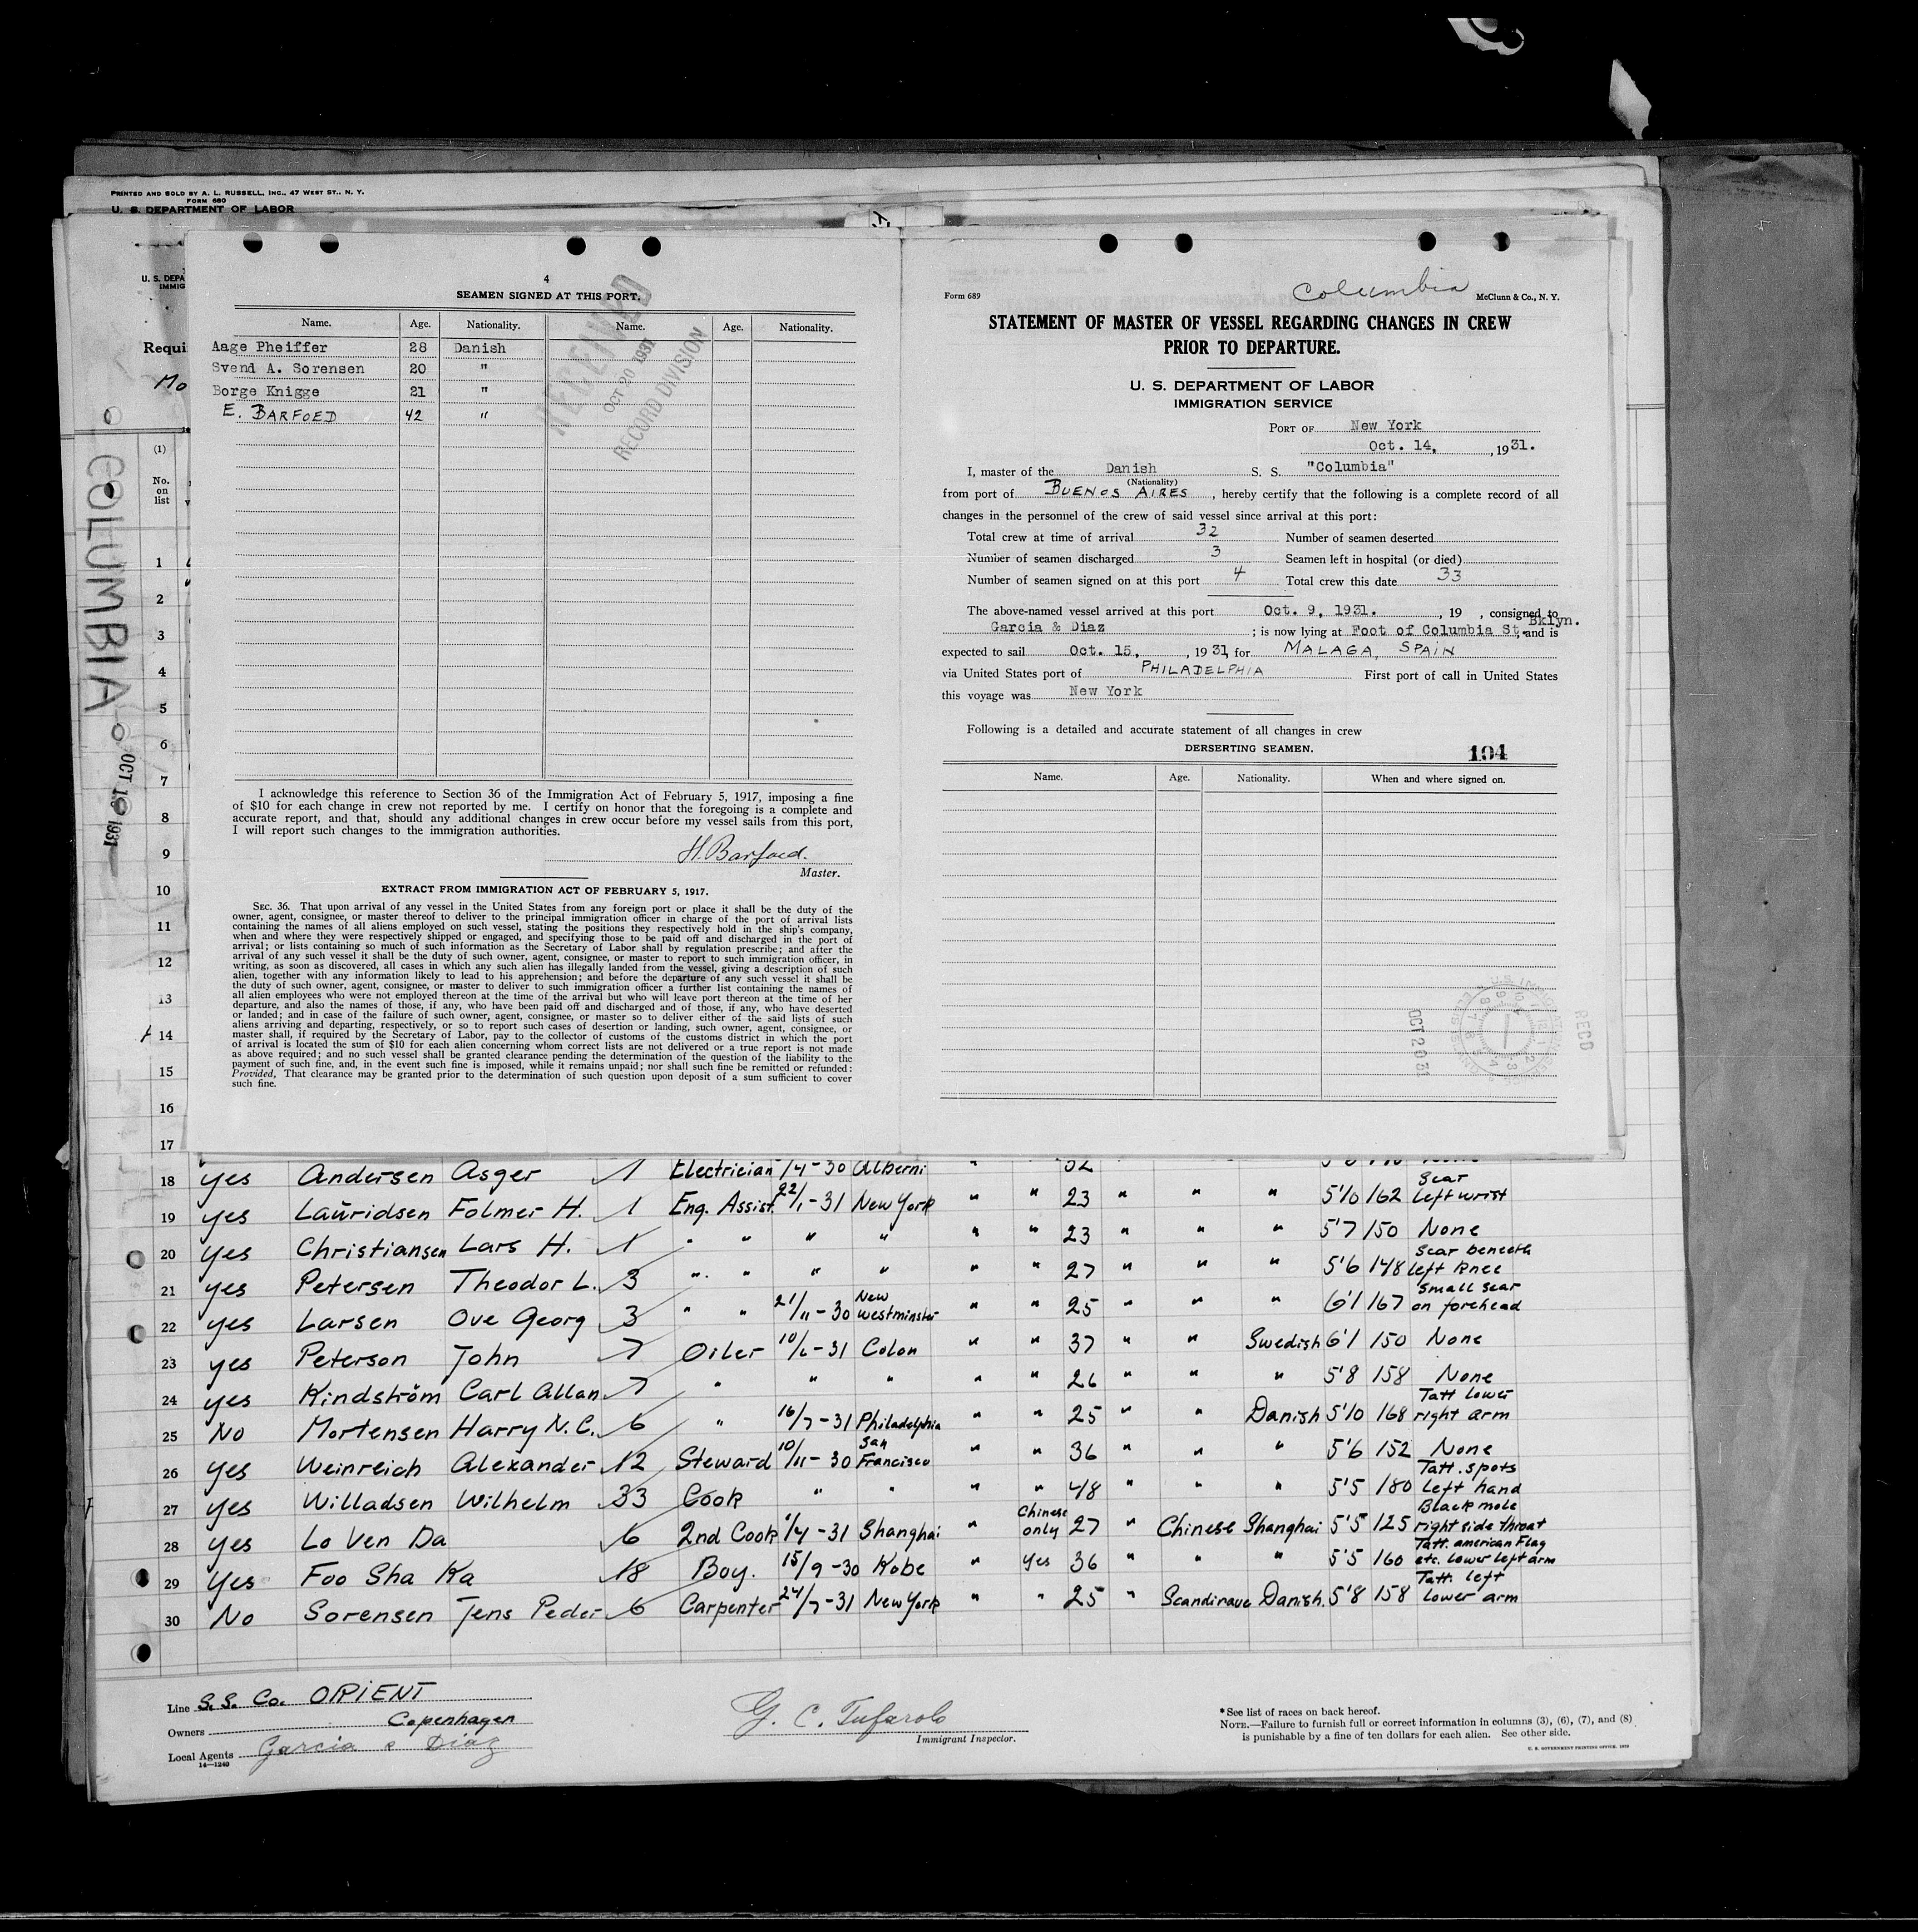 PRINTED AND SOLD BY A. L. RUSSELL, INC., 47 WEST ST., N. Y.
FORM 680
U. S. DEPARTMENT OF LABOR
U. S. DEPA
IMMIG
Requi
Mo
(1)
No.
on
list
COLUMBIA
OCT 1 1931
1
2
3
4
5
6
7
8
9
10
11
12
13
14
15
16
17
4
SEAMEN SIGNED AT THIS PORT.
Name. Age. Nationality. Name. Age. Nationality.
Aage Pheiffer 28 Danish
Svend A. Sorensen 20 "
Borge Knigge 21 "
E. BARFOED 42 "
RECEIVED
OCT 20 1931
RECORD DIVISION
I acknowledge this reference to Section 36 of the Immigration Act of February 5, 1917, imposing a fine
of $10 for each change in crew not reported by me. I certify on honor that the foregoing is a complete and
accurate report, and that, should any additional changes in crew occur before my vessel sails from this port,
I will report such changes to the immigration authorities.
H. Barfoed.
Master.
EXTRACT FROM IMMIGRATION ACT OF FEBRUARY 5, 1917.
SEC. 36. That upon arrival of any vessel in the United States from any foreign port or place it shall be the duty of the
owner, agent, consignee, or master thereof to deliver to the principal immigration officer in charge of the port of arrival lists
containing the names of all aliens employed on such vessel, stating the positions they respectively hold in the ship's company,
when and where they were respectively shipped or engaged, and specifying those to be paid off and discharged in the port of
arrival; or lists containing so much of such information as the Secretary of Labor shall by regulation prescribe; and after the
arrival of any such vessel it shall be the duty of such owner, agent, consignee, or master to report to such immigration officer, in
writing, as soon as discovered, all cases in which any such alien has illegally landed from the vessel, giving a description of such
alien, together with any information likely to lead to his apprehension; and before the departure of any such vessel it shall be
the duty of such owner, agent, consignee, or master to deliver to such immigration officer a further list containing the names of
all alien employees who were not employed thereon at the time of the arrival but who will leave port thereon at the time of her
departure, and also the names of those, if any, who have been paid off and discharged and of those, if any, who have deserted
or landed; and in case of the failure of such owner, agent, consignee, or master so to deliver either of the said lists of such
aliens arriving and departing, respectively, or so to report such cases of desertion or landing, such owner, agent, consignee, or
master shall, if required by the Secretary of Labor, pay to the collector of customs of the customs district in which the port
of arrival is located the sum of $10 for each alien concerning whom correct lists are not delivered or a true report is not made
as above required; and no such vessel shall be granted clearance pending the determination of the question of the liability to the
payment of such fine, and, in the event such fine is imposed, while it remains unpaid; nor shall such fine be remitted or refunded:
Provided, That clearance may be granted prior to the determination of such question upon deposit of a sum sufficient to cover
such fine.
Columbia
Form 689 McClunn & Co., N. Y.
STATEMENT OF MASTER OF VESSEL REGARDING CHANGES IN CREW
PRIOR TO DEPARTURE.
U. S. DEPARTMENT OF LABOR
IMMIGRATION SERVICE
PORT OF New York
Oct. 14, , 1931.
I, master of the Danish S. S. "Columbia"
(Nationality)
from port of BUENOS AIRES , hereby certify that the following is a complete record of all
changes in the personnel of the crew of said vessel since arrival at this port:
Total crew at time of arrival 32 Number of seamen deserted
Number of seamen discharged 3 Seamen left in hospital (or died)
Number of seamen signed on at this port 4 Total crew this date 33
The above-named vessel arrived at this port Oct. 9, 1931. , 19 , consigned to
Garcia & Diaz ; is now lying at Foot of Columbia St. Bklyn. , and is
expected to sail Oct. 15, , 1931, for MALAGA, SPAIN
via United States port of PHILADELPHIA First port of call in United States
this voyage was New York
Following is a detailed and accurate statement of all changes in crew
DERSERTING SEAMEN. 104
Name. Age. Nationality. When and where signed on.
OCT 20 31
RECD
18 yes Andersen Asger 1 Electrician 1/4-30 Alberni " " 32
19 yes Lauridsen Folmer H. 1 Eng. Assist. 22/1-31 New York " " 23 " " " 5'10 162 Scar left wrist
20 yes Christiansen Lars H. 1 " " " " " " 23 " " " 5'7 150 None
21 yes Petersen Theodor L. 3 " " " " " " 27 " " " 5'6 148 Scar beneath left knee
22 yes Larsen Ove Georg 3 " " 21/11-30 New Westminster " " 25 " " " 6'1 167 Small scar on forehead
23 yes Peterson John 7 Oiler 10/6-31 Colon " " 37 " " Swedish 6'1 150 None
24 yes Kindström Carl Allan 7 " " " " " 26 " " " 5'8 158 None
25 No Mortensen Harry N. C. 6 " 16/7-31 Philadelphia " " 25 " " Danish 5'10 168 Tatt lower right arm
26 yes Weinreich Alexander 12 Steward 10/11-30 San Francisco " " 36 " " " 5'6 152 None
27 yes Willadsen Wilhelm 33 Cook " " " " 48 " " " 5'5 180 Tatt. spots left hand
28 yes Lo Ven Da 6 2nd Cook 1/4-31 Shanghai " Chinese only 27 " Chinese Shanghai 5'5 125 Black mole right side throat
29 yes Foo Sha Ka 18 Boy. 15/9-30 Kobe " yes 36 " " " 5'5 160 Tatt. american Flag etc. lower left arm
30 No Sorensen Jens Peder 6 Carpenter 24/7-31 New York " " 25 " Scandinave Danish. 5'8 158 Tatt. left lower arm
Line S.S. Co. ORIENT
Owners Copenhagen
Local Agents Garcia & Diaz
14—1240
G. C. Tufarolo
Immigrant Inspector.
*See list of races on back hereof.
NOTE.—Failure to furnish full or correct information in columns (3), (6), (7), and (8)
is punishable by a fine of ten dollars for each alien. See other side.
U. S. GOVERNMENT PRINTING OFFICE. 1929